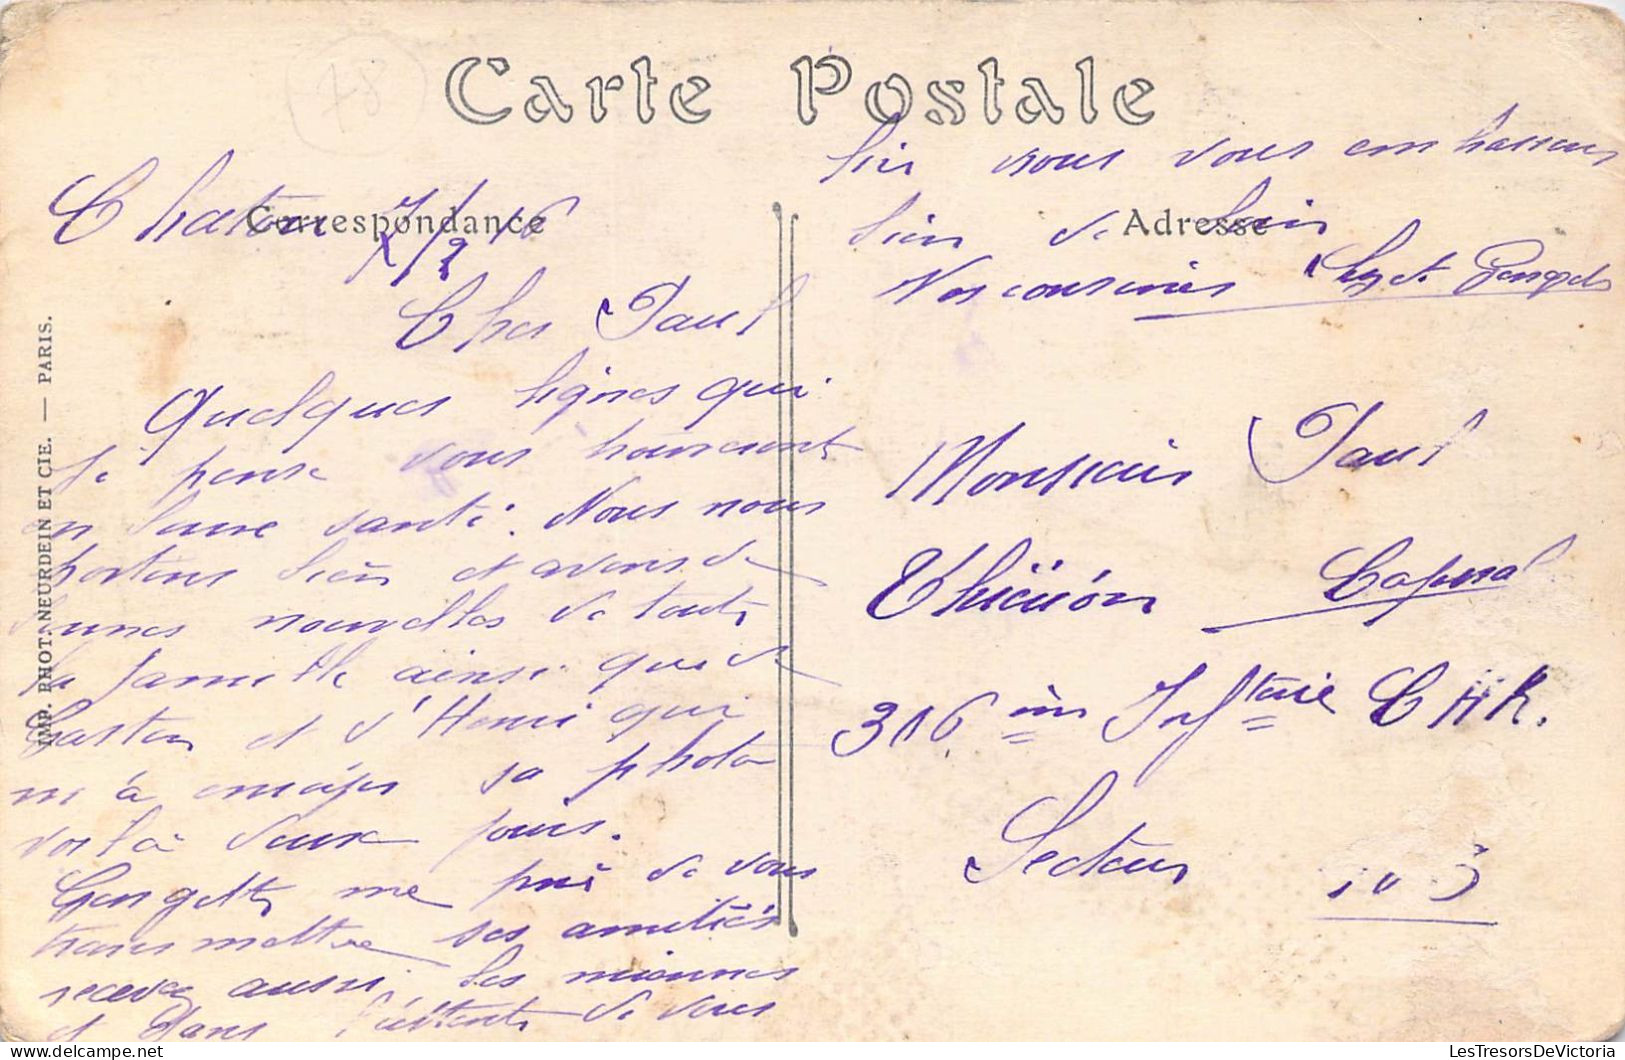 Carte Postale
78
Correspondance
Adresse
Chatou 7/2 16
Cher Paul
Quelques lignes qui
je pense vous trouveront
en bonne santé. Nous nous
portons bien et avons de
bonnes nouvelles de toute
la famille ainsi que de
Gaston et d'Henri qui
m'à envoyer sa photo
voilà deux jours.
me prie de vous
transmettre ses amitiés
recevez aussi les miennes
et dans l'attente de vous
lir nous vous embrassons
bien de loin
Vos cousines
Monsieur Paul
Caporal
316 ièm Infterie CHR.
Secteur 103
IMP. PHOT. NEURDEIN ET CIE. — PARIS.
LesTresorsDeVictoria